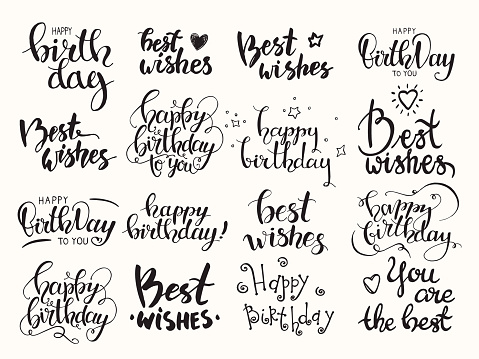 HAPPY
birth
day
best
wishes
Best
wishes
HAPPY
BirthDay
TO YOU
Best
wishes
happy
birthday
to you
happy
birthday
Best
wishes
HAPPY
BirthDay
TO YOU
happy
birthday!
best
wishes
happy
birthday
happy
birthday
Best
WISHES
Happy
Birthday
You
are
the best